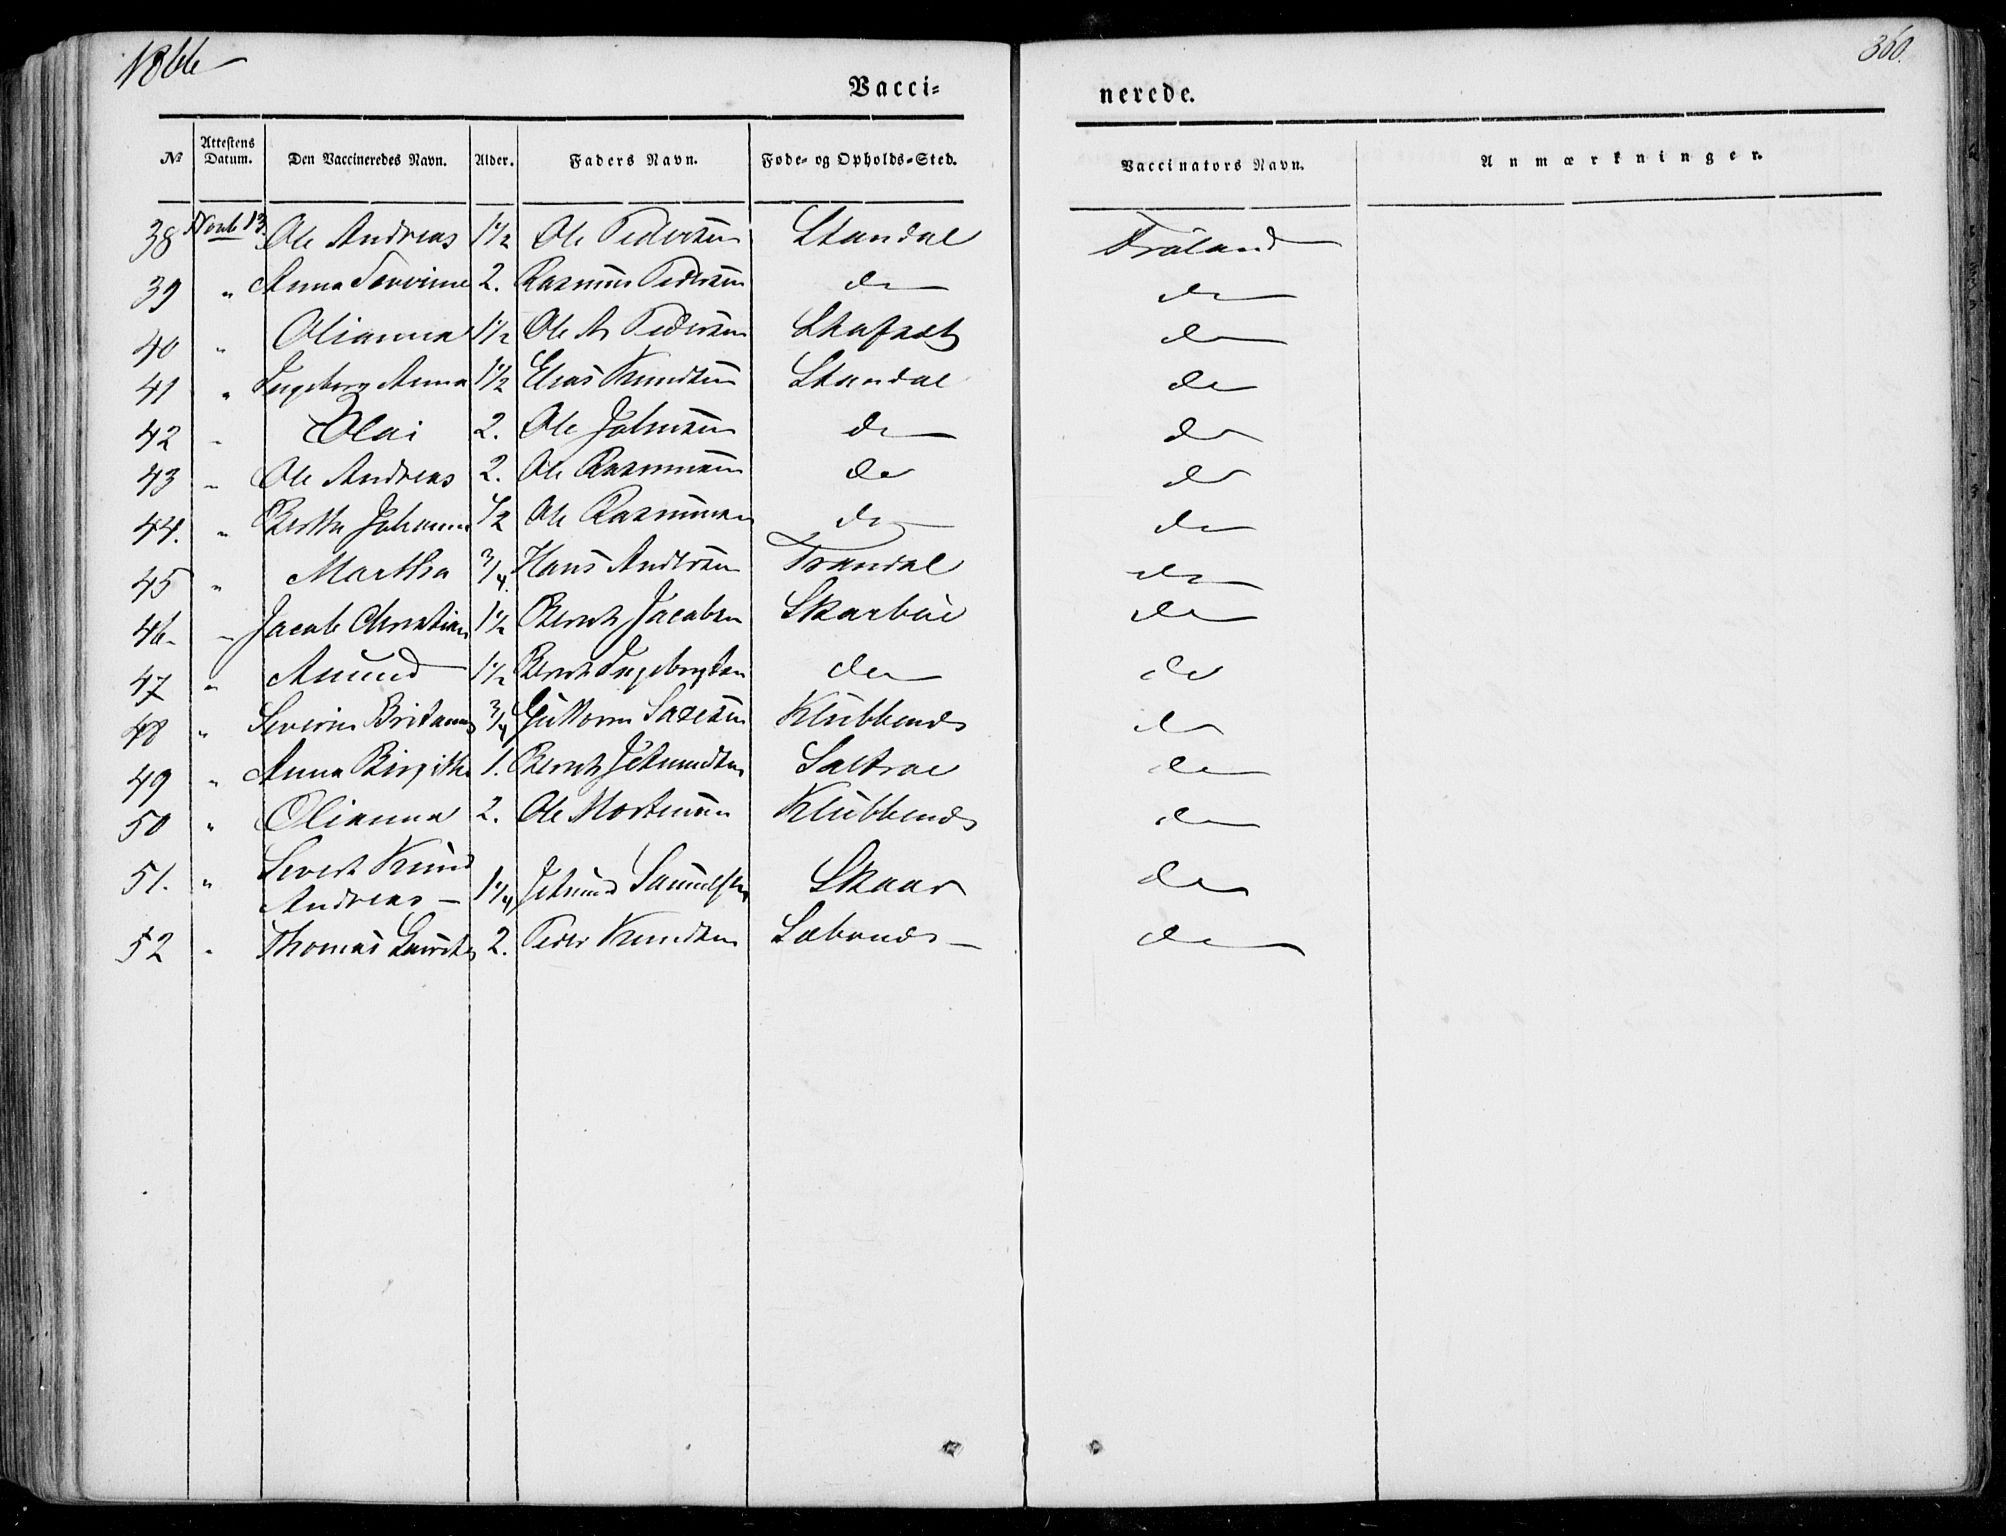 1866
360.
Vacci= nerede.
No Attestens Datum. Den Vaccineredes Navn. Alder. Faders Navn. Føde- og Opholds-Sted. Vaccinators Navn. Anmærkninger.
38 Novb 13 Ole Andreas 1 1/2 Ole Pedersen Standal Frøland
39 " Anna Severine 2. Rasmus Pedersen do do
40 " Olianna 1 1/2 Ole A Pedersen do
41 " Ingeborg Anna 1 1/2 Elias Knudsen Standal do
42 " Olai 2. Ole Johnsen do do
43 " Ole Andreas 2. Ole Rasmussen do do
44. " Berthe Johanne 1/2 Ole Rasmussen do do
45 " Martha 3/4. Hans Andersen Trandal do
46 " Jacob Christian 1 1/2 Bernt Jacobsen Skarbøe do
47 " Amund 1 1/2 Bernt Ingebrigtsen do do
48 " Severin 3/4 Guttorm Klubbenes do
49 " Anna Birgithe 1. Bernt Jetmundsen Sætrae do
50 " Olianna 2. Ole Mortensen Klubbenes do
51. " Severt Knud
Andreas — 1 1/4 Jetmund Samuelsen Skaar do
52 " Thomas Lauritz 2. Peder Knudsen Sæbønes — do